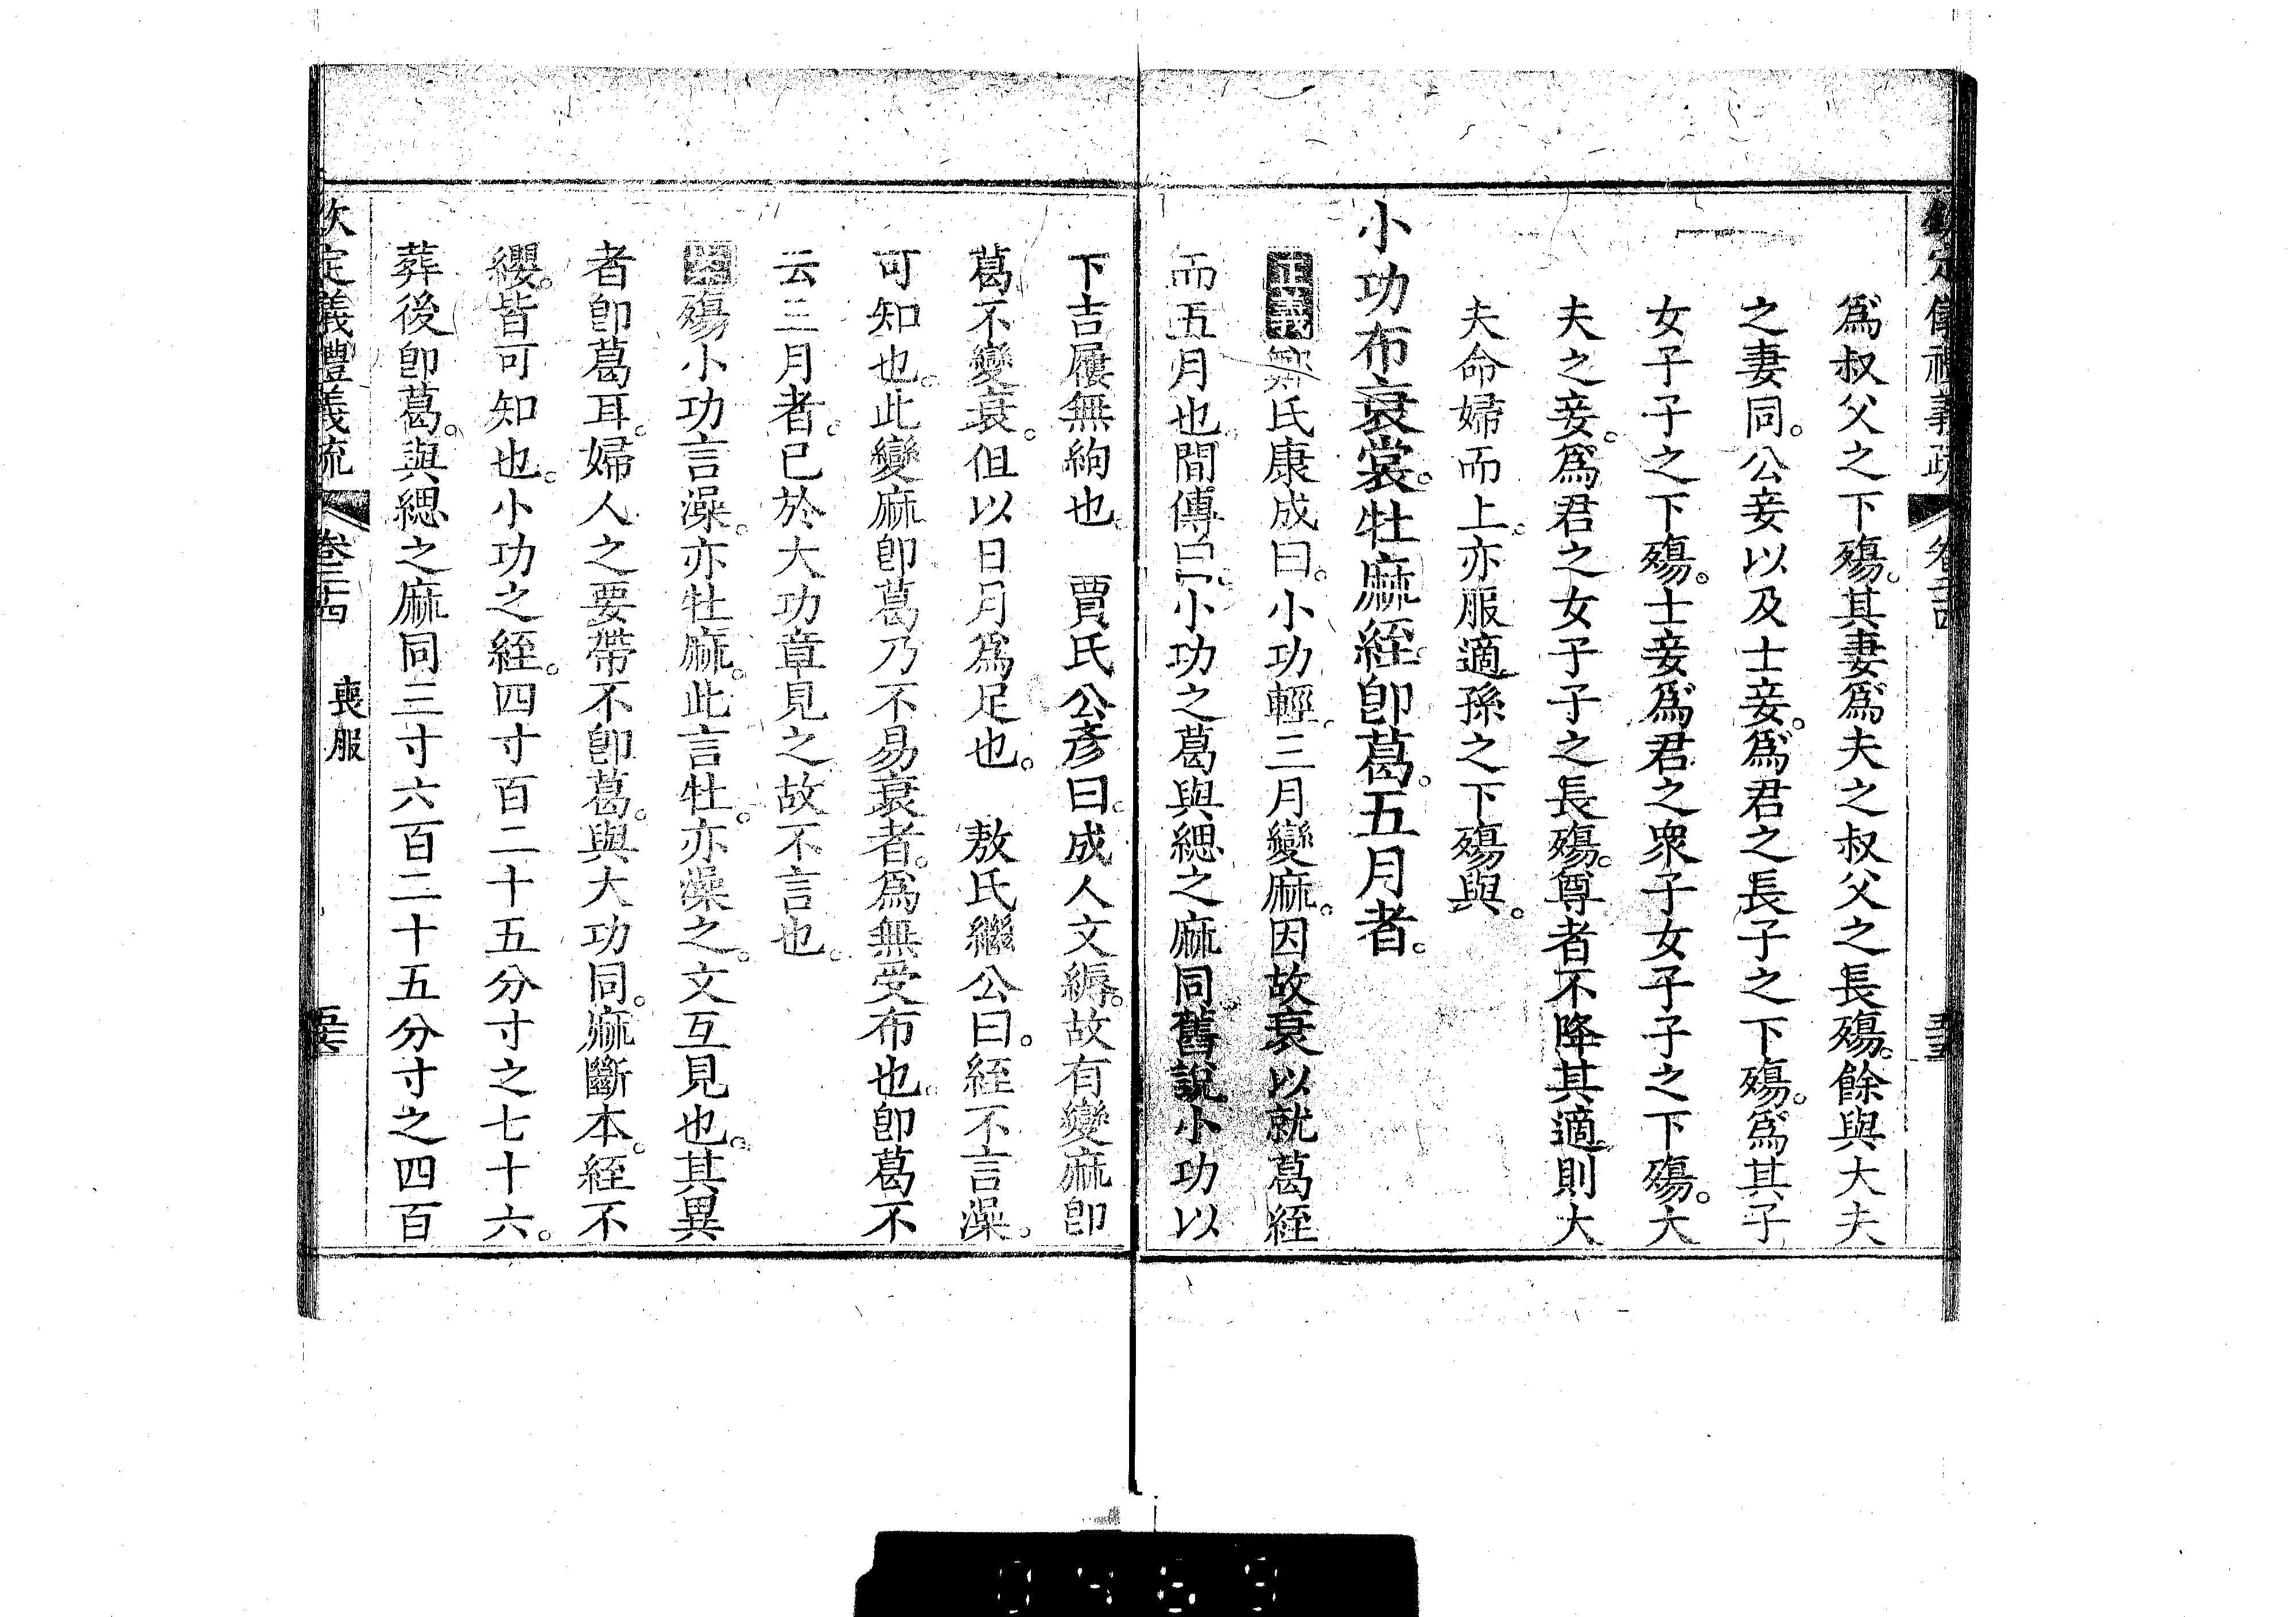 欽定儀禮義疏 卷二十四
爲叔父之下殤。其妻爲夫之叔父之長殤。餘與大夫
之妻同。公妾以及士妾。爲君之長子之下殤。爲其子
女子子之下殤。士妾爲君之衆子女子子之下殤。大
夫之妾。爲君之女子子之長殤。尊者不降其適則大
夫命婦而上。亦服適孫之下殤與。
小功布衰裳。牡麻絰。卽葛。五月者。
正義 鄭氏康成曰。小功輕。三月變麻。因故衰以就葛絰
而五月也。間傳曰。小功之葛與緦之麻同。舊說小功以
下吉屨無絇也。 賈氏公彥曰。成人文縟。故有變麻卽
葛。不變衰。但以日月爲足也。 敖氏繼公曰。絰不言澡。
可知也。此變麻卽葛乃不易衰者。爲無受布也。卽葛不
云三月者。已於大功章見之故不言也。
殤小功言澡。亦牡麻。此言牡。亦澡之。文互見也。其異
者卽葛耳。婦人之要帶不卽葛。與大功同。麻斷本。絰不
纓。皆可知也。小功之絰。四寸百二十五分寸之七十六。
葬後卽葛。與緦之麻同三寸六百二十五分寸之四百
欽定義禮義疏 卷二十四 喪服